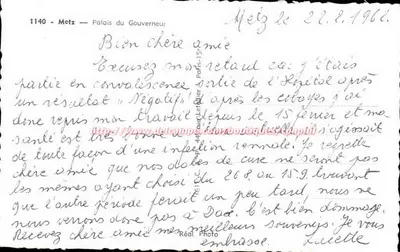 1140 - Metz — Palais du Gouverneur
Metz le 22.2.1962.
Bien chère amie
Excusez mon retard car j'étais
partie en convalescence sortie de l'Hôpital après
un résultat "Négatif" après les cobayes j'ai
donc repris mon travail depuis le 15 février et ma
santé est très il s'agissait
de toute façon d'une infection rénnale. Je regrette
chère amie que nos dates de cure ne seront pas
les mêmes ayant choisi du 26.8 au 15.9 trouvant
que l'autre période ferait un peu tard, nous ne
nous verrons donc pas à Dax. C'est bien dommage.
Recevez chère amie mes meilleurs souvenirs. Je vous
embrasse.
Réal. Photo